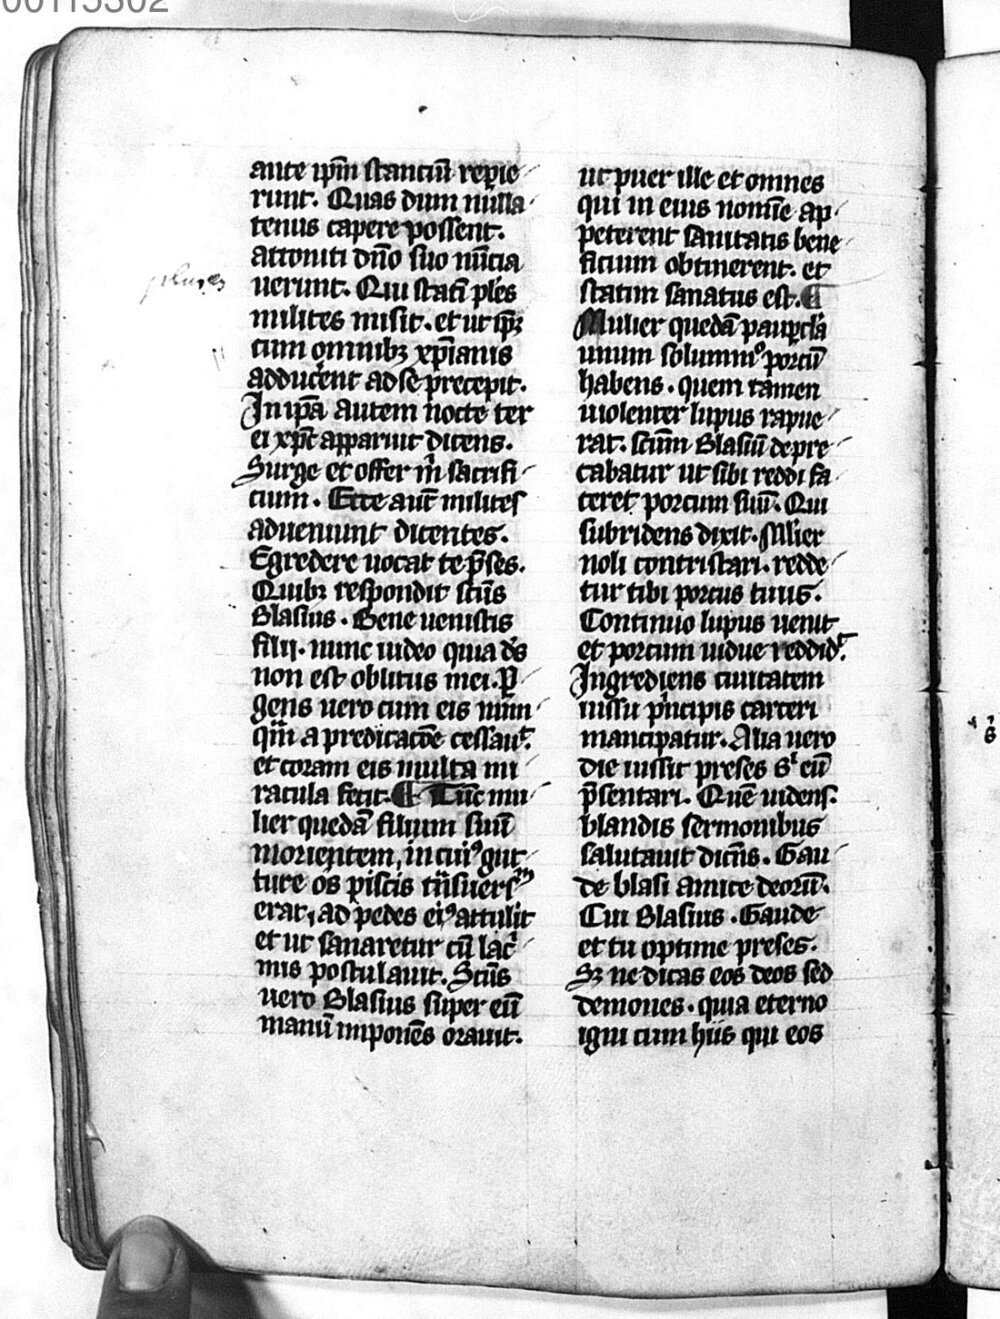 00115302
ante ip̅m stanciu̅ repie
runt. Quas dum nulla
tenus capere possent.
attoniti dn̅o suo nu̅cia
uerunt. Qui stati̅ ples
plures
milites misit. et ut ip̅ꝫ
cum om̅nibꝫ xp̅ianis
adducerent ad se precepit.
In ip̅a autem nocte ter
ei xp̅c apparuit dicens.
Surge et offer m̅ sacrifi
cium. Ecce aut̅ milites
adueniunt dicentes.
Egredere uocat te p̅ses.
Quibꝫ respondit sc̅us
Blasius. Bene uenistis
filii. nunc uideo quia d̅s
non est oblitus mei. P̲
gens uero cum eis nun
qu̅ a predicac̅oe cessauit.
et coram eis multa mi
racula fecit. ¶ Tu̅c mu
lier queda̅ filium suu̅
morientem, in cuiꝰ gut
ture os piscis t̅nsuersu̅
erat, ad pedes eiꝰ attulit
et ut sanaretur cu̅ lac̅
mis postulauit. Sc̅us
uero Blasius super eu̅
manu̅ impone̅s orauit.
ut puer ille et omnes
qui in eius nomi̅e ap
peterent sanitatis bene
ficium obtinerent. et
statim sanatus est. ¶
Mulier queda̅ paupcl̅a
unum solummo porcu̅
habens. quem tamen
uiolenter lupus rapue
rat. sc̅m Blasiu̅ depre
cabatur ut sibi reddi fa
ceret porcum suu̅. Qui
subridens dixit. Mulier
noli contristari. redde
tur tibi porcus tuus.
Continuo lupus uenit
et porcum uidue reddid̅t.
Ingrediens ciuitatem
iussu p̅ncipis carceri
mancipatur. Alia uero
die iussit preses s̅ eu̅
p̅sentari. Que̅ uidens.
blandis sermonibus
salutauit dice̅s. Gau
de blasi amice deoru̅.
Cui Blasius. Gaude
et tu optime preses.
Sꝫ ne dicas eos deos sed
demones. quia eterno
igni cum hiis qui eos